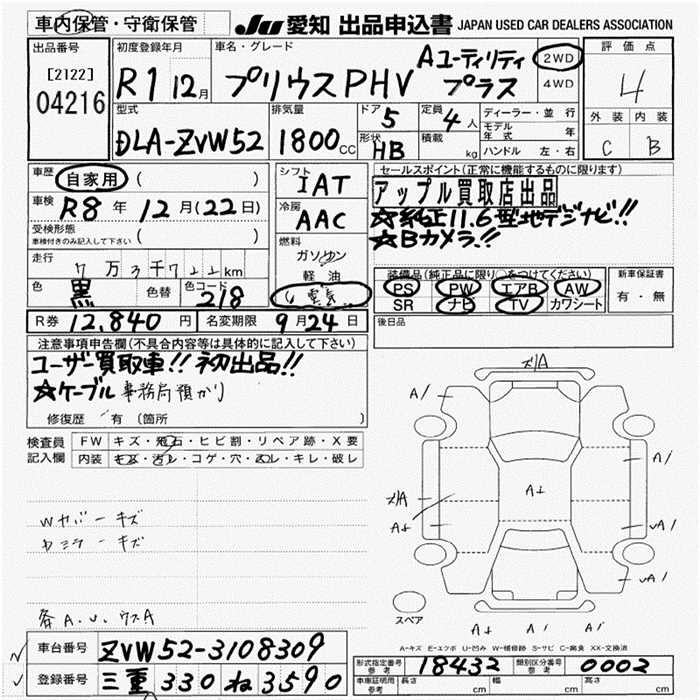 車内保管・守衛保管
JU 愛知 出品申込書 JAPAN USED CAR DEALERS ASSOCIATION
出品番号
[2122]
04216
初度登録年月
R1 12月
車名・グレード
プリウスPHV
Aユーティリティ
プラス
2WD
4WD
評価点
4
外装 内装
C B
型式
DLA-ZVW52
排気量
1800 CC
ドア 5
形状 HB
定員 4 人
積載 kg
ディーラー・並行
モデル年式 年
ハンドル 左・右
車歴
自家用 ( )
車検
R8 年 12 月 (22 日)
受検形態
車検付きのみ記入して下さい ( )
走行
7 万 3 千 7 2 2 km
色 黒 色替 色コード 218
シフト
IAT
冷房
AAC
燃料
ガソリン
軽油
電気
セールスポイント(正常に機能するものに限ります)
アップル買取店出品
☆純正11.6型地デジナビ!!
☆Bカメラ!!
装備品(純正品に限り○をつけてください)
PS PW エアB AW
SR ナビ TV カワシート
新車保証書
有・無
後日品
R券 12,840 円 名変期限 9月24日
注意事項申告欄(不具合内容等は具体的に記入して下さい)
ユーザー買取車!! 初出品!!
☆ケーブル 事務局預かり
修復歴 有 (箇所 )
検査員
記入欄
FW キズ・飛石・ヒビ割・リペア跡・X要
内装 キズ・汚レ・コゲ・穴・スレ・キレ・破レ
Wカバーキズ
各A.U.ウスA
A/
A/
A↓
A↓
A/
スペア
A↓ A↓ A/
A-キズ E-エクボ U-凹み W-補修跡 S-サビ C-腐食 XX-交換済
車台番号 ZVW52-3108309
登録番号 三重 330 ね 3590
形式指定番号
参考
18432
類別区分番号
参考
0002
車庫証明用
参考
長さ cm 幅 cm 高さ cm